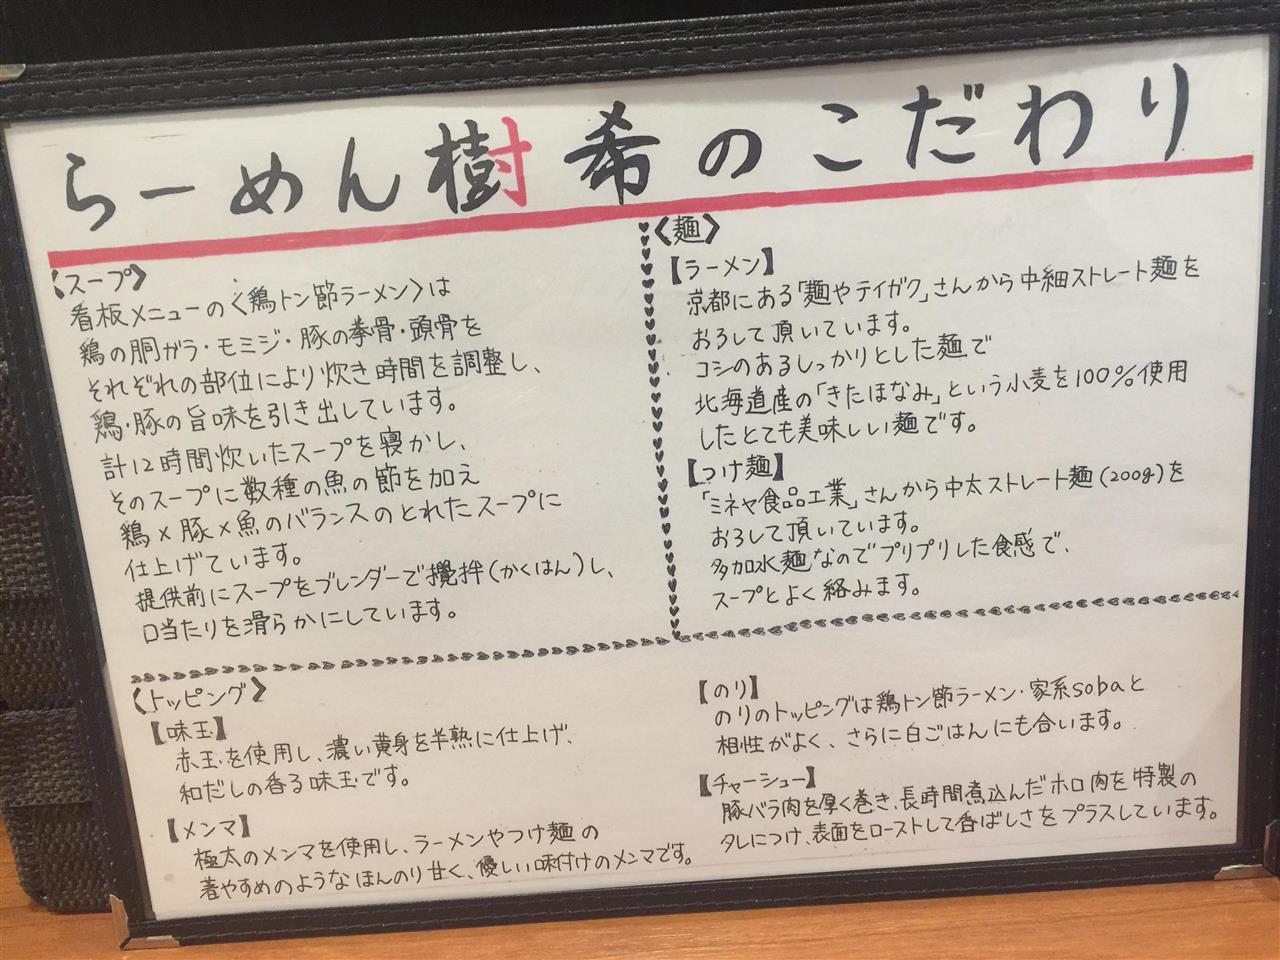 らーめん樹希のこだわり
〈スープ〉
看板メニューの〈鶏トン節ラーメン〉は
鶏の胴ガラ・モミジ・豚の拳骨・頭骨を
それぞれの部位により炊き時間を調整し、
鶏・豚の旨味を引き出しています。
計12時間炊いたスープを寝かし、
そのスープに数種の魚の節を加え
鶏×豚×魚のバランスのとれたスープに
仕上げています。
提供前にスープをブレンダーで攪拌(かくはん)し、
口当たりを滑らかにしています。
〈麺〉
【ラーメン】
京都にある「麺やテイガク」さんから中細ストレート麺を
おろして頂いています。
コシのあるしっかりとした麺で
北海道産の「きたほなみ」という小麦を100%使用
したとても美味しい麺です。
【つけ麺】
「ミネヤ食品工業」さんから中太ストレート麺(200g)を
おろして頂いています。
多加水麺なのでプリプリした食感で、
スープとよく絡みます。
〈トッピング〉
【味玉】
赤玉を使用し、濃い黄身を半熟に仕上げ、
和だしの香る味玉です。
【メンマ】
極太のメンマを使用し、ラーメンやつけ麺の
箸やすめのようなほんのり甘く、優しい味付けのメンマです。
【のり】
のりのトッピングは鶏トン節ラーメン・家系sobaと
相性がよく、さらに白ごはんにも合います。
【チャーシュー】
豚バラ肉を厚く巻き、長時間煮込んだホロ肉を特製の
タレにつけ、表面をローストして香ばしさをプラスしています。